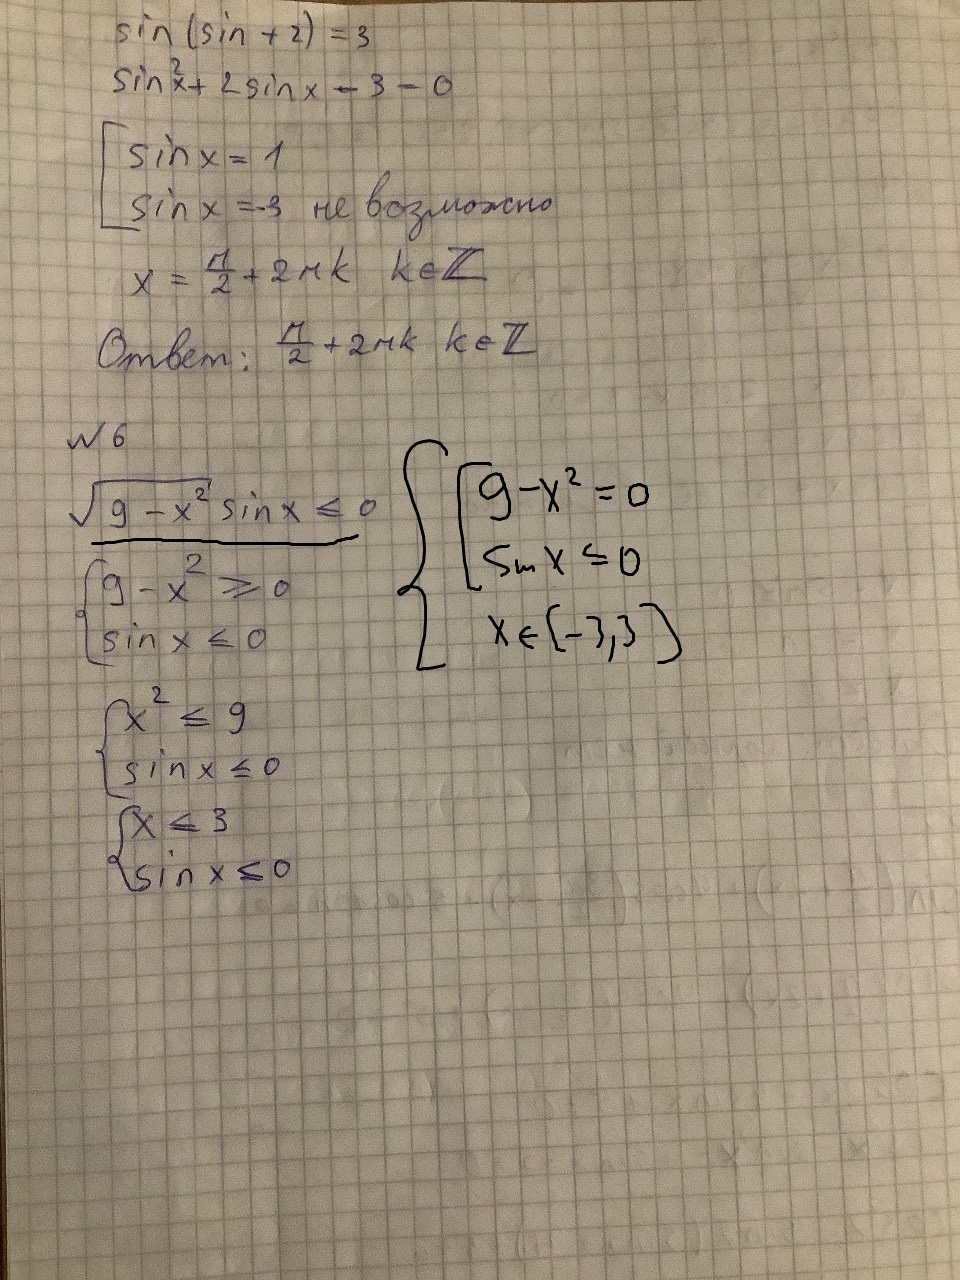 sin (sin + 2) = 3
sin²x + 2 sin x - 3 - 0
sin x = 1
sin x = -3 не возможно
x = π/2 + 2πk k∈ℤ
Ответ: π/2 + 2πk k∈ℤ
№ 6
√(9 - x²) sin x ≤ 0
9 - x² ≥ 0
sin x ≤ 0
x² ≤ 9
sin x ≤ 0
x ≤ 3
sin x ≤ 0
9 - x² = 0
sin x ≤ 0
x ∈ [-3,3]